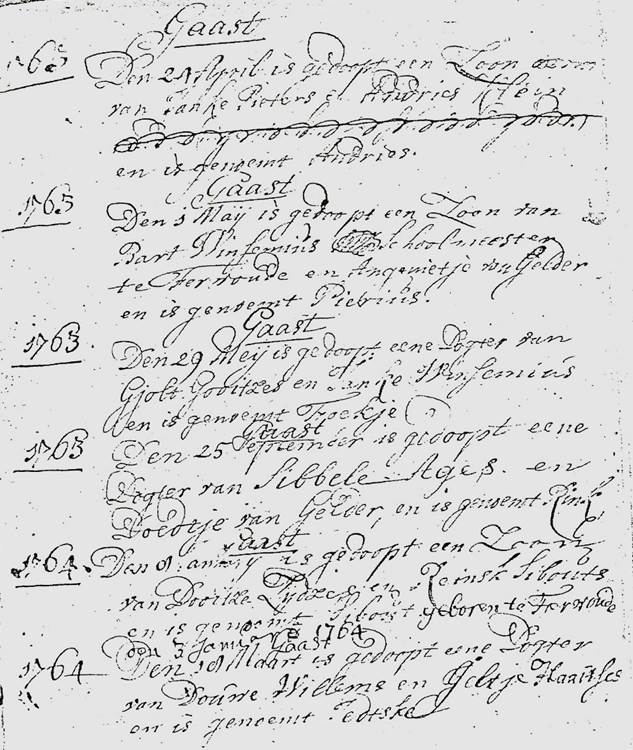 Gaast
1763
Den 24 April is gedoopt een Zoon
van Janke Pieters & Andries Klein
en is genoemt Andries.
Gaast
1763
Den 1 Maij is gedoopt een Zoon van
Bart Winsemius Schoolmeester
te Ferwoude en Angenietje van Gelder
en is genoemt Pierius.
Gaast
1763
Den 29 Meij is gedoopt eene Dogter van
Gjolt Gooitzes en Janke Winsemius
en is genoemt Froekje
Gaast
1763
Den 25 September is gedoopt eene
Dogter van Sibbele Ages en
Boedtje van Gelder, en is genoemt
Gaast
1764
Den is gedoopt een Zoon
van Dooitze Tydzes en Reinsk Sibouts
en is genoemt Sibout geboren te Ferwoude
den 3 Januarij 1764
Gaast
1764
Den 18 Maart is gedoopt eene Dogter
van Douwe Willems en Jeltje Haaitses
en is genoemt Jedtske